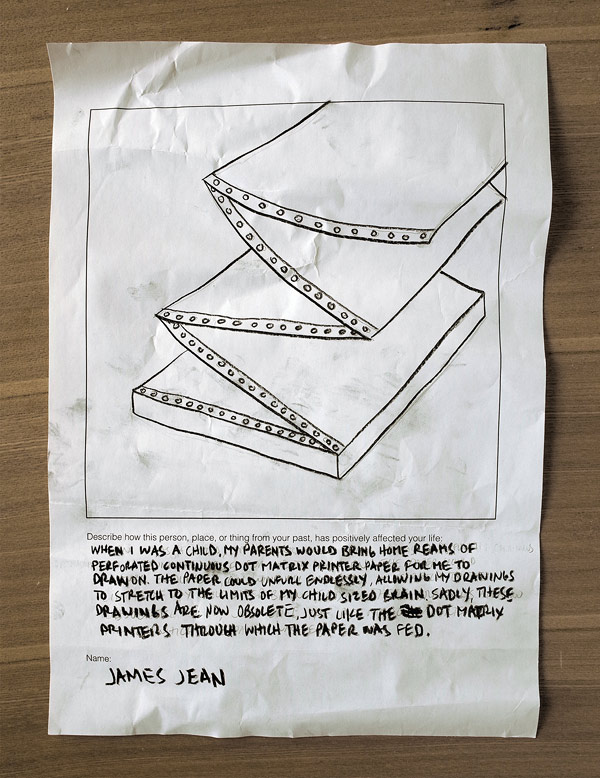 Describe how this person, place, or thing from your past, has positively affected your life:
WHEN I WAS A CHILD, MY PARENTS WOULD BRING HOME REAMS OF
PERFORATED CONTINUOUS DOT MATRIX PRINTER PAPER FOR ME TO
DRAW ON. THE PAPER COULD UNFURL ENDLESSLY, ALLOWING MY DRAWINGS
TO STRETCH TO THE LIMITS OF MY CHILD SIZED BRAIN. SADLY, THESE
DRAWINGS ARE NOW OBSOLETE, JUST LIKE THE DOT MATRIX
PRINTERS THROUGH WHICH THE PAPER WAS FED.
Name:
JAMES JEAN